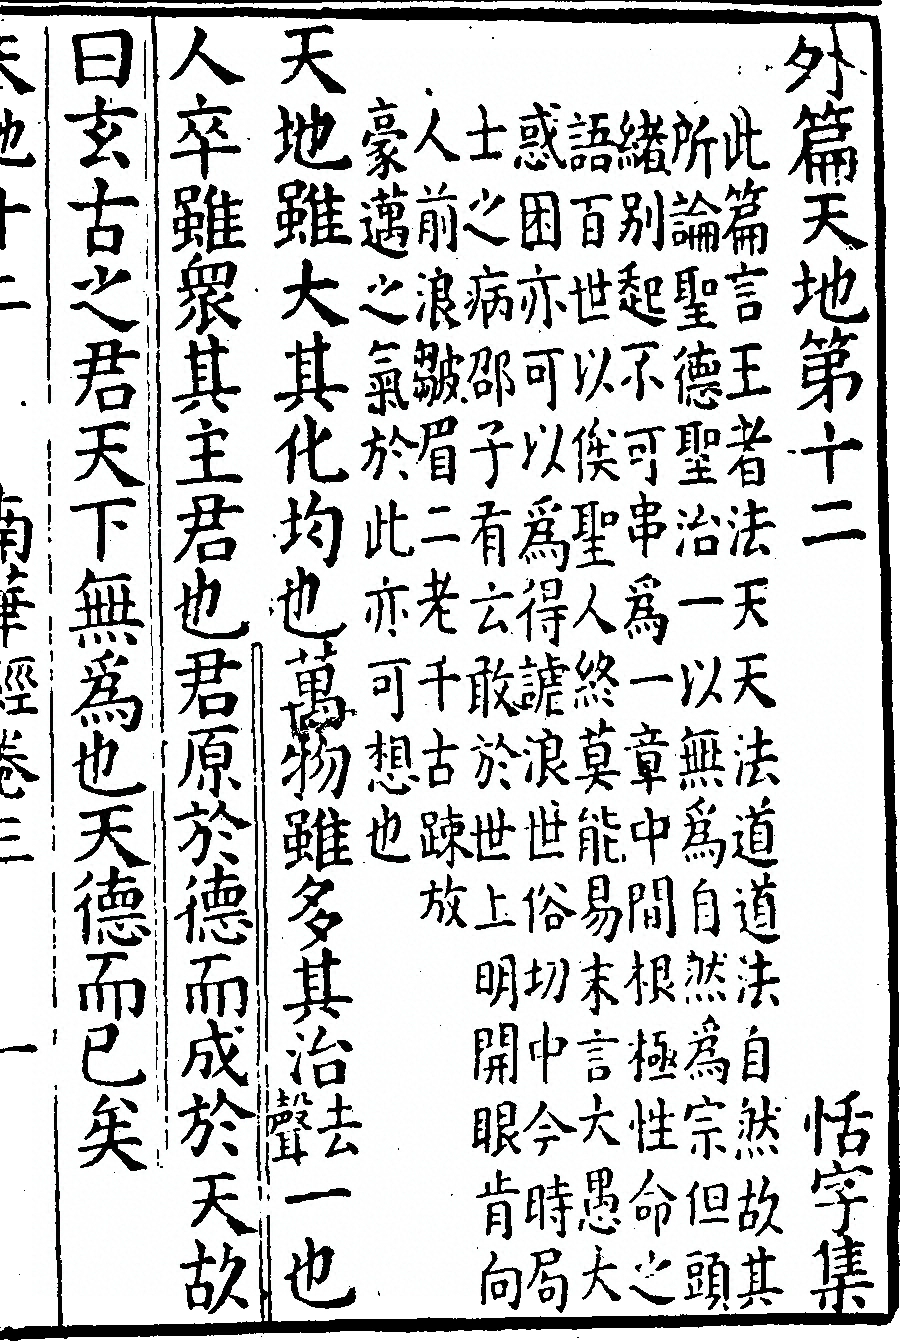 外篇天地第十二　恬字集
此篇言王者法天天法道道法自然故其
所論聖德聖治一以無為自然為宗但頭
緒别起不可串為一章中間根極性命之
語百世以俟聖人終莫能易末言大愚大
惑困亦可以為得謔浪世俗切中今時局
士之病邵子有云敢於世上明開眼肯向
人前浪皺眉二老千古踈放
豪邁之氣於此亦可想也
天地雖大其化均也萬物雖多其治去聲一也
人卒雖眾其主君也君原於德而成於天故
曰玄古之君天下無為也天德而已矣
天地十二　南華經卷三　一